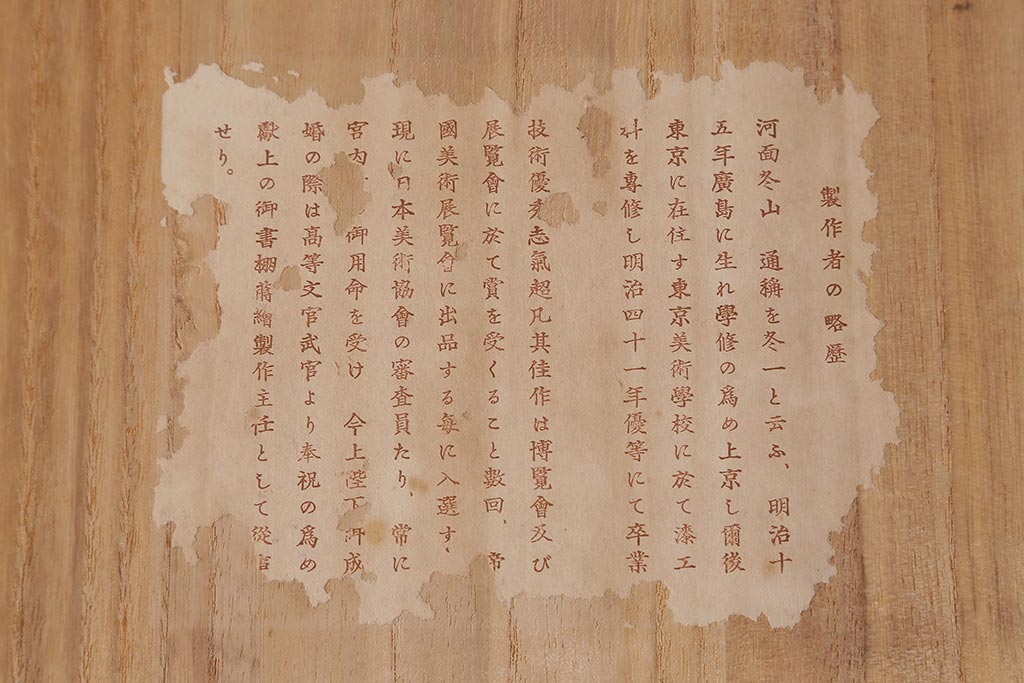 製作者の略歴
河面冬山　通稱を冬一と云ふ、明治十
五年廣島に生れ學修の爲め上京し爾後
東京に在住す東京美術學校に於て漆工
科を專修し明治四十一年優等にて卒業
技術優秀志氣超凡其佳作は博覽會及び
展覽會に於て賞を受くること數回、帝
國美術展覽會に出品する每に入選す、
現に日本美術協會の審査員たり、常に
宮内 御用命を受け　今上陛下御成
婚の際は高等文官武官より奉祝の爲め
獻上の御書棚蒔繪製作主任として從事
せり。